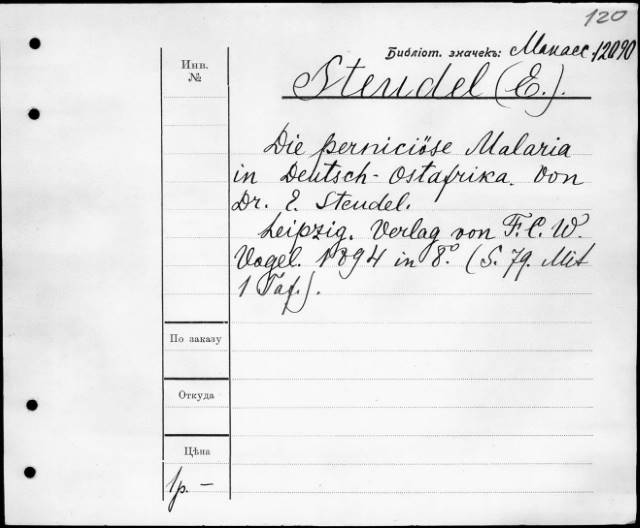 120
Библіот. значекъ: Манасс. 12090
Инв.
№
Steudel (E.).
Die perniciöse Malaria
in Deutsch-Ostafrika. Von
Dr. E. Steudel.
Leipzig. Verlag von F. C. W.
Vogel. 1894 in 8°. (S. 79. Mit
1 Taf.).
По заказу
Откуда
Цѣна
1р. —